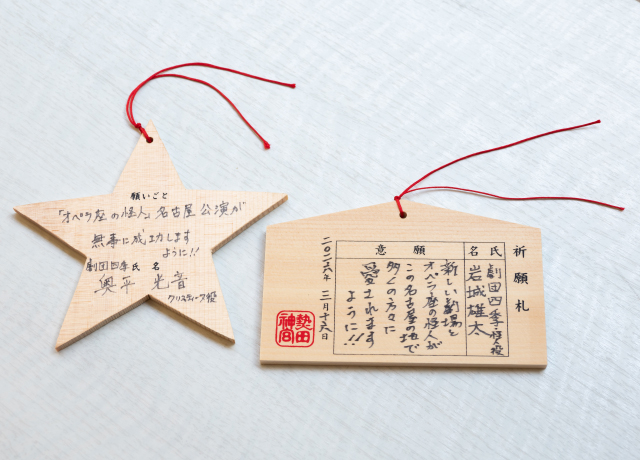 願いごと
「オペラ座の怪人」名古屋公演が
無事に成功します
ように!!
劇団四季氏 名
奥平 光音
クリスティーヌ役
祈願札
氏名
劇団四季 怪人役
岩城雄太
願意
新しい劇場と
オペラ座の怪人が
この名古屋の地で
多くの方々に
愛されます
ように!!
二〇二六年 三月十六日
熱田
神宮